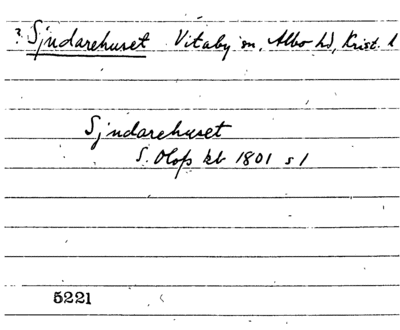 ? Sjndarehuset Vitaby sn, Albo hd, Krist. l
Sjndarehuset
S. Olofs kb 1801 s 1
5221